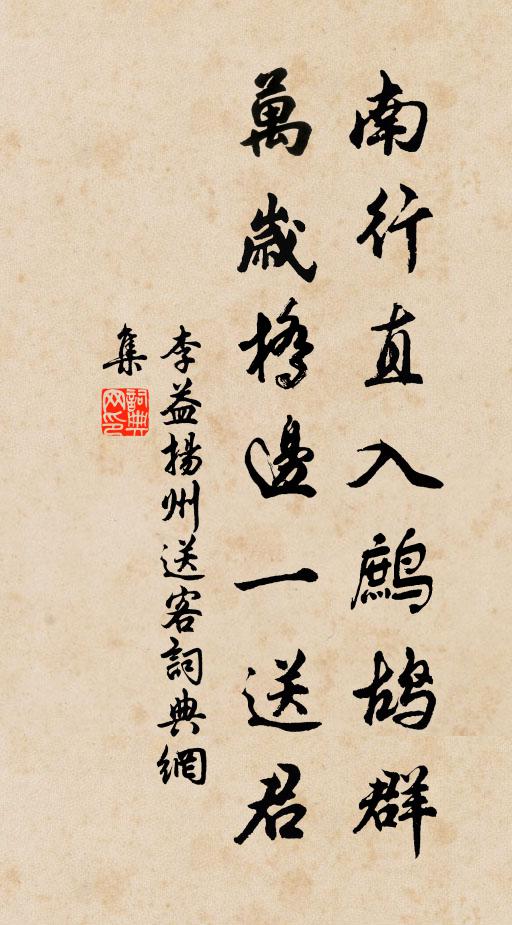 南行直入鷓鴣群
萬歲橋邊一送君
李益揚州送客詞典網
集
詞典網印